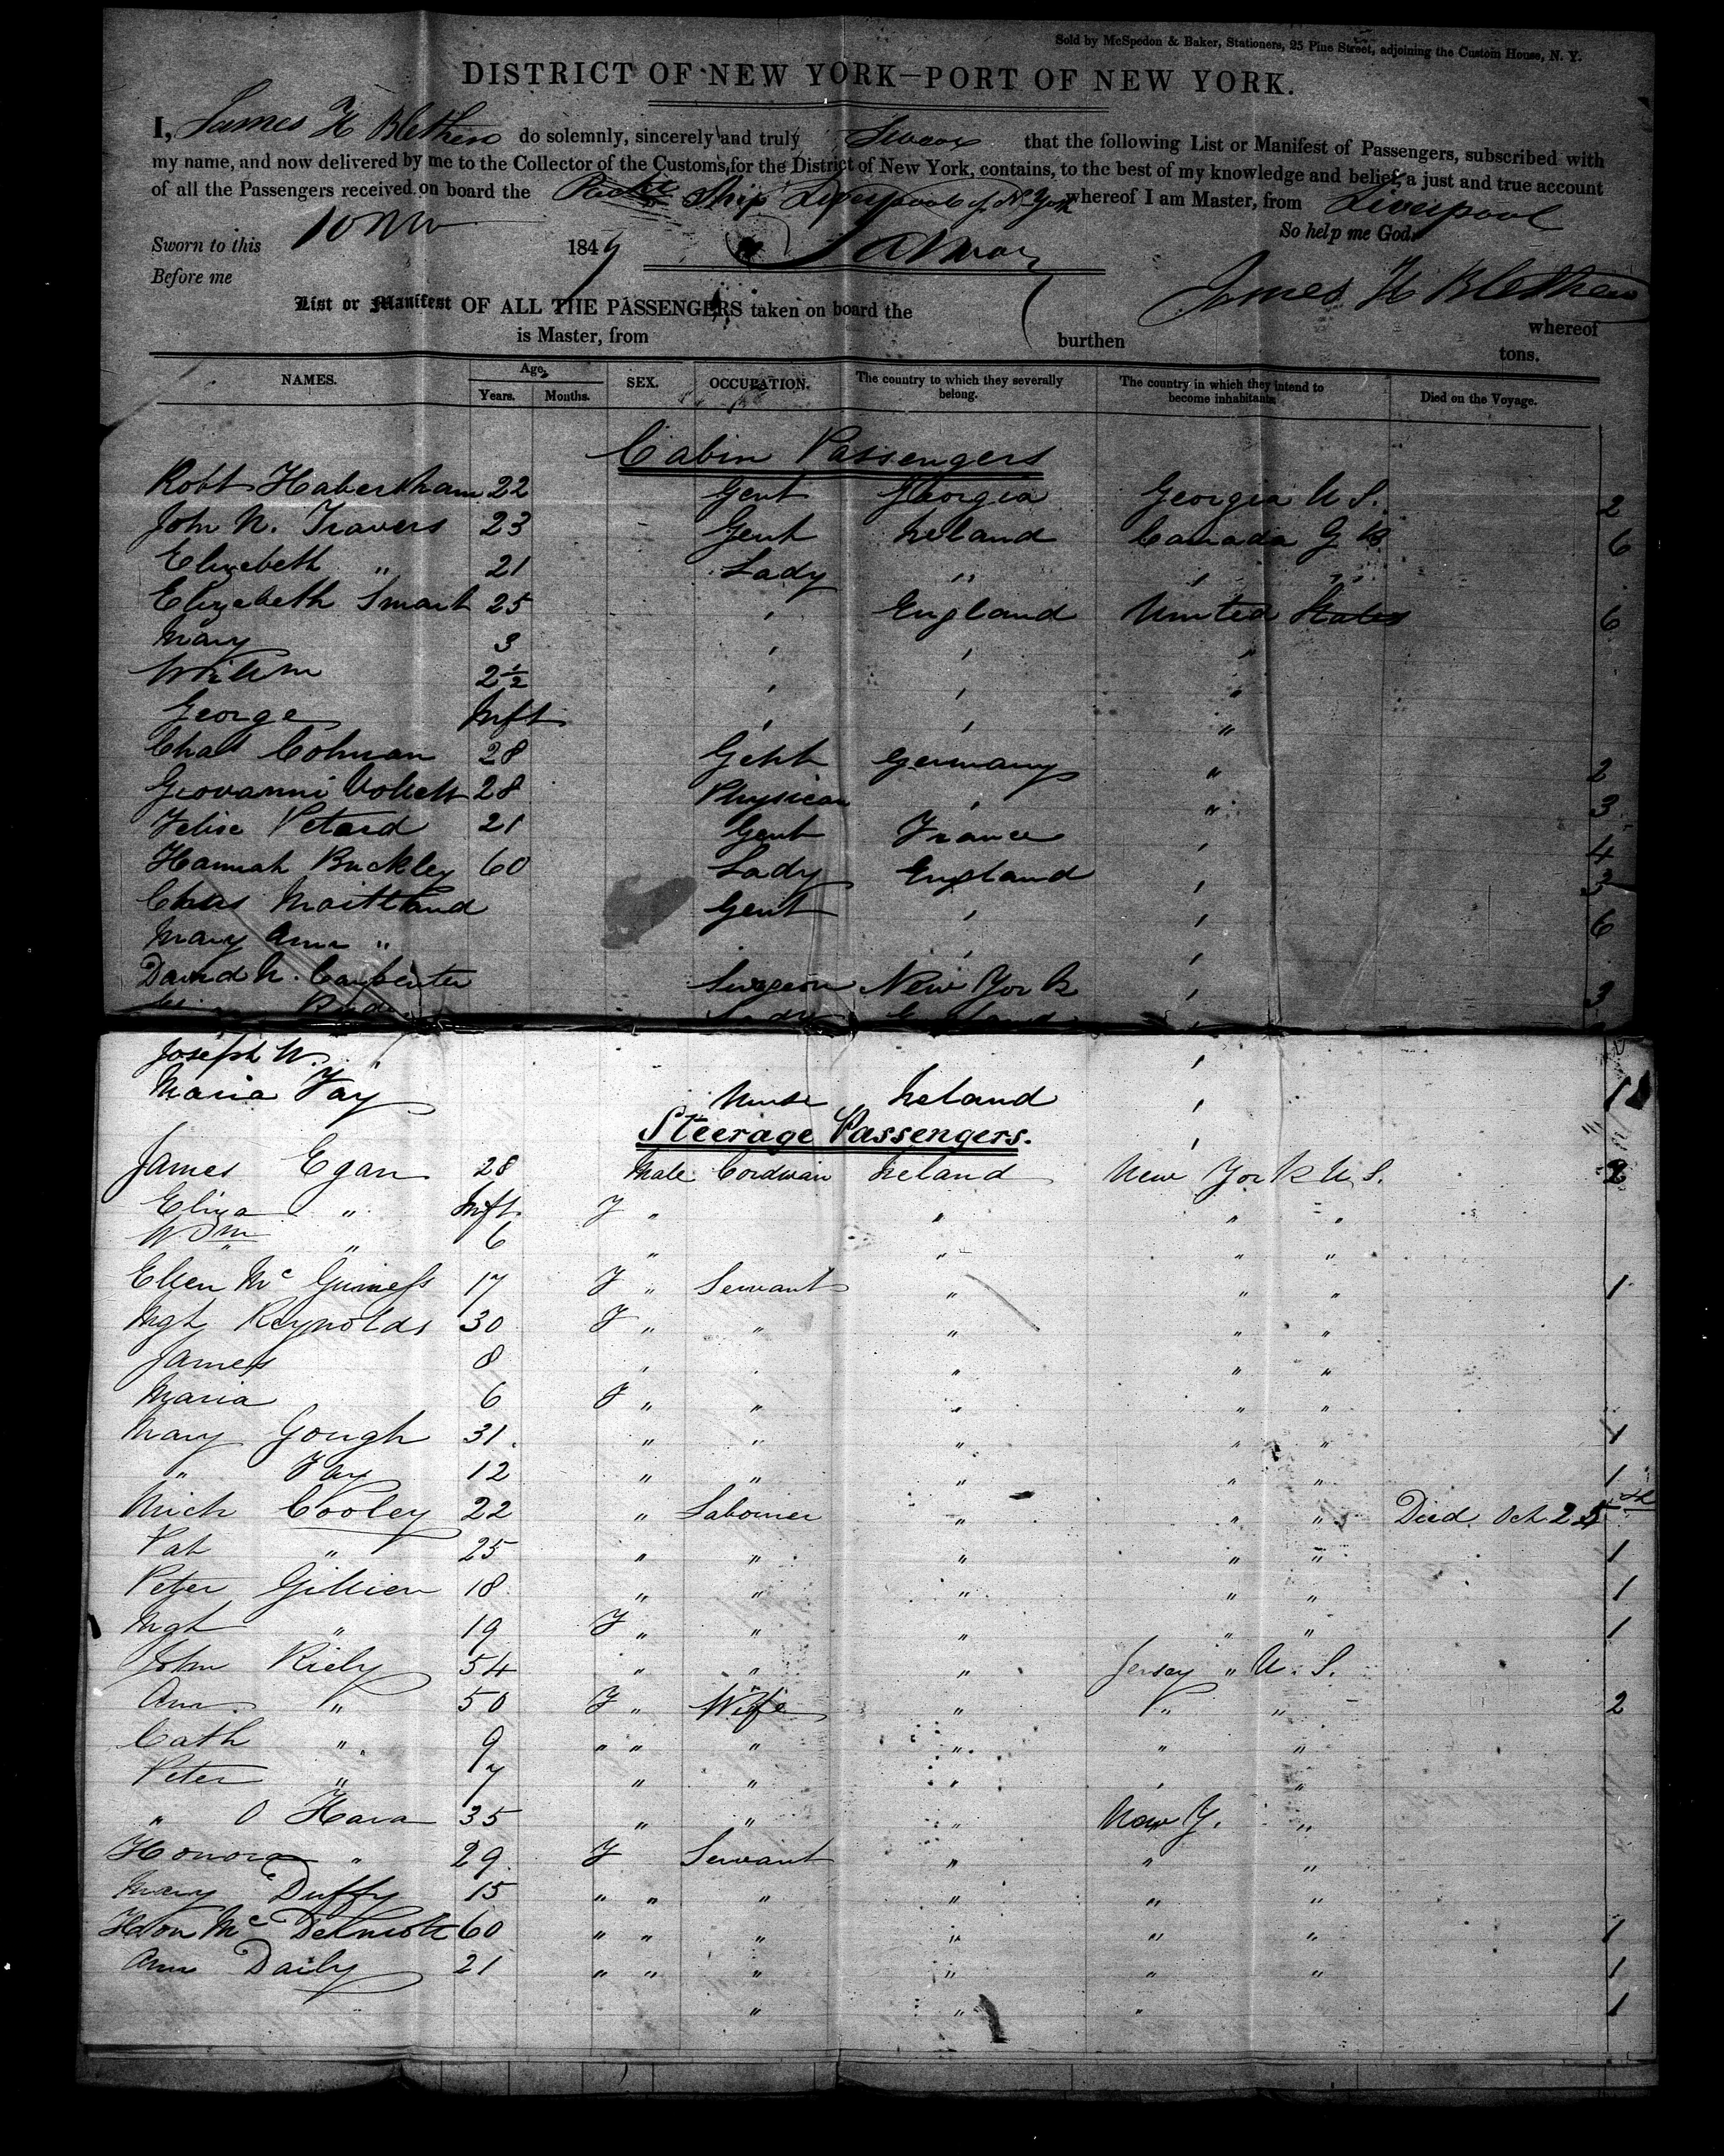 Sold by McSpedon & Baker, Stationers, 25 Pine Street, adjoining the Custom House, N. Y.
DISTRICT OF NEW YORK—PORT OF NEW YORK.
I, James H Blethen do solemnly, sincerely and truly Swear that the following List or Manifest of Passengers, subscribed with
my name, and now delivered by me to the Collector of the Customs for the District of New York, contains, to the best of my knowledge and belief, a just and true account
of all the Passengers received on board the Packet Ship Liverpool of N York whereof I am Master, from Liverpool
So help me God.
Sworn to this 10 Nov 1849
Before me
James H Blethen
List or Manifest OF ALL THE PASSENGERS taken on board the whereof
is Master, from burthen tons.
NAMES. Age, Years. Months. SEX. OCCUPATION. The country to which they severally belong. The country in which they intend to become inhabitants Died on the Voyage.
Cabin Passengers
Robt Habersham 22 Gent Georgia Georgia U S. 2
John N. Travers 23 Gent Ireland Canada G B 6
Elizebeth " 21 Lady " " "
Elizebeth Smart 25 " England United States 6
Mary 3 " " "
Willm 2½ " " "
George Inft " " "
Chas Cohman 28 Gent Germany " 2
Geovanni 28 Physican " " 3
Felise Petard 21 Gent France " 4
Hannah Buckley 60 Lady England " 3
Chas Maitland Gent " " 6
Mary Ann " " "
David N. Carpenter Surgeon New York " 3
Lady England "
Joseph W. "
Maria Fay Nurse Ireland "
Steerage Passengers.
James Egan 28 Male Cordwan Ireland New York U S. 2
Eliza " Inft F " " " "
Wm " 6 " " " "
Ellen Mc Guiness 17 F " Servant " " " 1
Mgt Reynolds 30 F " " " " "
James 8 " " " " "
Maria 6 F " " " " "
Mary Gough 31 " " " " " 1
" Fay 12 " " " " " 1
Mich Cooley 22 " Labourer " " " Died Oct 25th
Pat " 25 " " " " " 1
Peter Gillien 18 " " " " " 1
Mgt " 19 F " " " " " 1
John Riely 54 " " " Jersey " U. S.
Ann " 50 F " Wife " " " 2
Cath " 9 " " " " " "
Peter " 7 " " " " "
" O Hara 35 " " " New Y. "
Honora " 29 F Servant " " "
Mary Duffy 15 " " " " " "
Hon Mc 60 " " " " " " 1
Ann Daily 21 " " " " " " 1
" " " 1